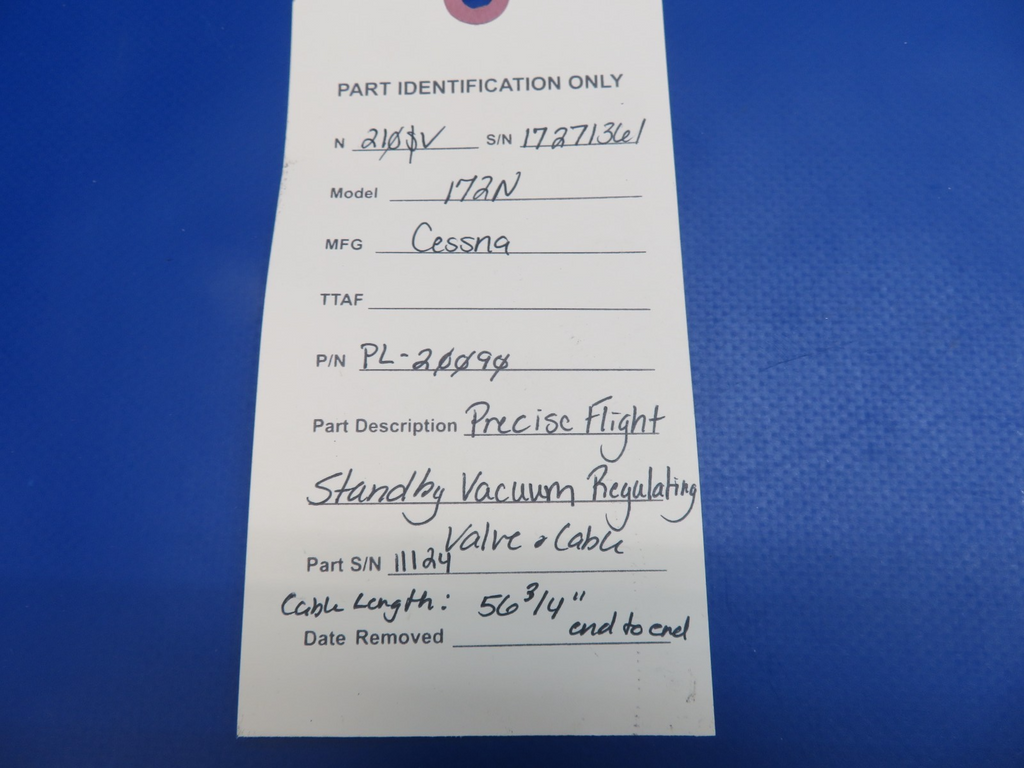 PART IDENTIFICATION ONLY
N 210 V S/N 17271361
Model 172N
MFG Cessna
TTAF
P/N PL-20090
Part Description Precise Flight
Standby Vacuum Regulating
Valve & Cable
Part S/N 11124
Cable Length: 56 3/4" end to end
Date Removed